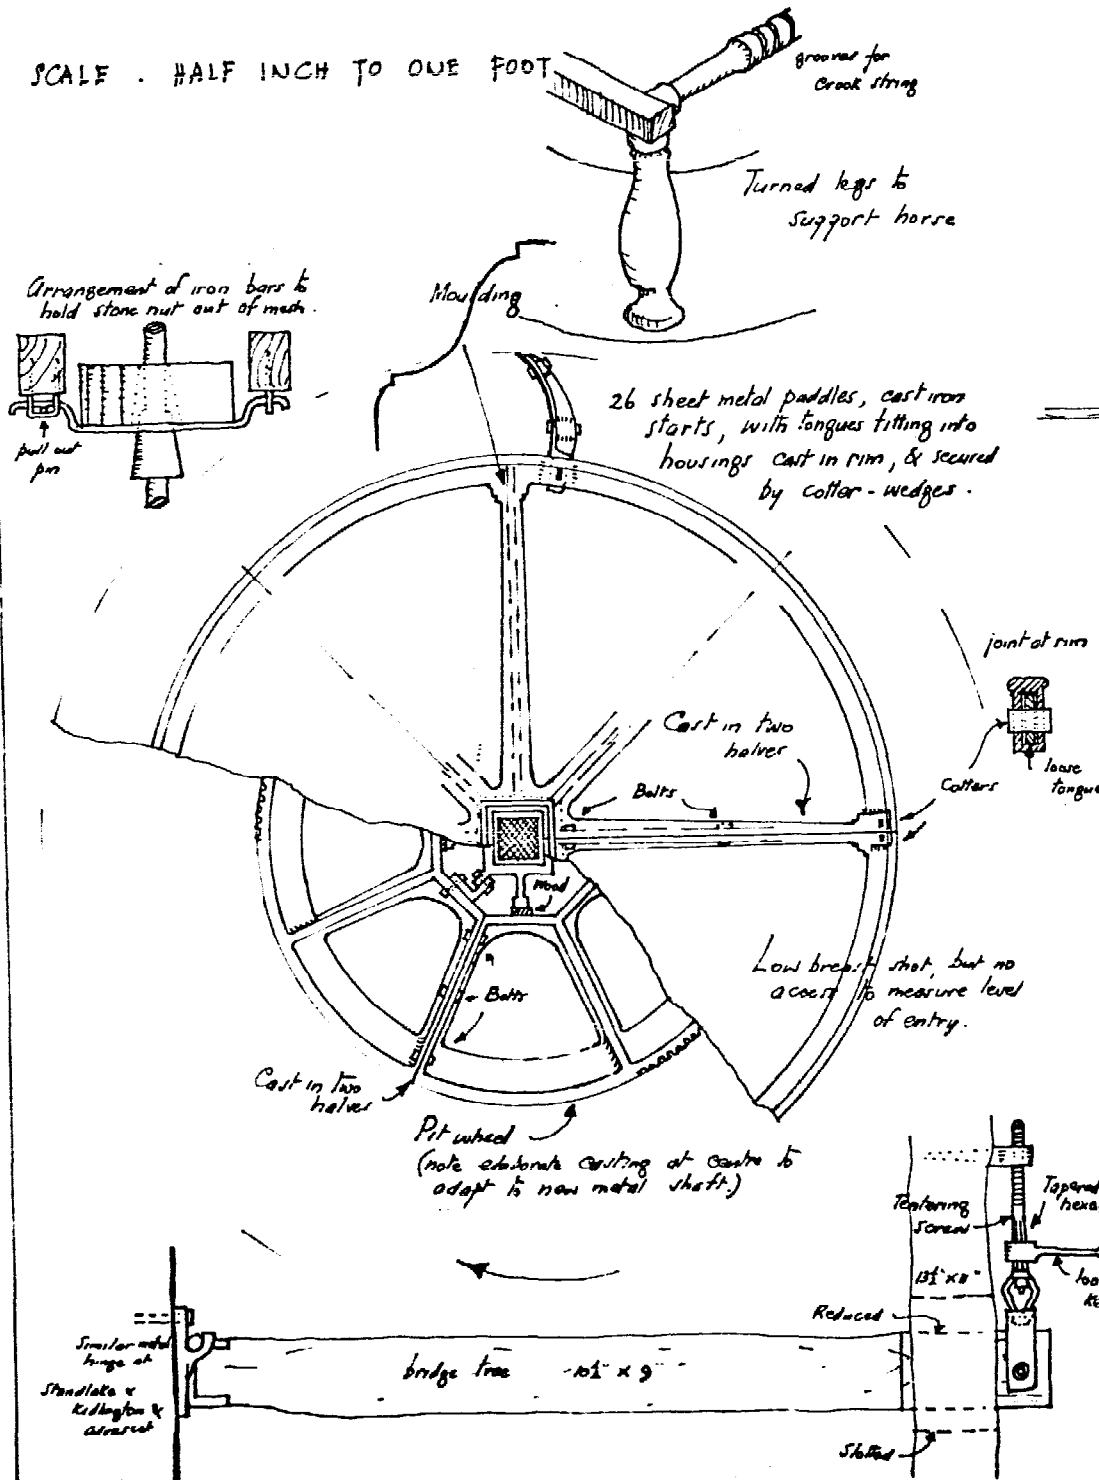 SCALE . HALF INCH TO ONE FOOT
grooves for
crook string
Turned legs to
support horse
Arrangement of iron bars to
hold stone nut out of mesh.
Moulding
pull out
pin
26 sheet metal paddles, cast iron
starts, with tongues fitting into
housings cast in rim, & secured
by cotter-wedges.
joint at rim
Cast in two
halves
loose
tongue
Bolts
Cotters
Wood
Low breast shot, but no
access to measure level
of entry.
Bolts
Cast in two
halves
Pit wheel
(note elaborate casting at centre to
adapt to new metal shaft.)
Tentering
screw
Tapered
hexa
13½" x 11"
loo
ke
Reduced
Similar metal
hinge at
Standlake &
Kidlington &
bridge tree 10½" x 9
Slotted